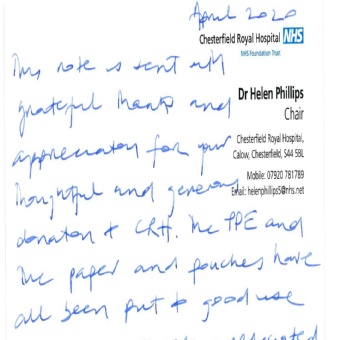 April 2020
Chesterfield Royal Hospital NHS
NHS Foundation Trust
This note is sent with
grateful thanks and
Dr Helen Phillips
Chair
appreciation for your
Chesterfield Royal Hospital,
Calow, Chesterfield, S44 5BL
thoughtful and generous
Mobile: 07920 781789
Email: helenphillips5@nhs.net
donation to CRH. The PPE and
the paper and pouches have
all been put to good use